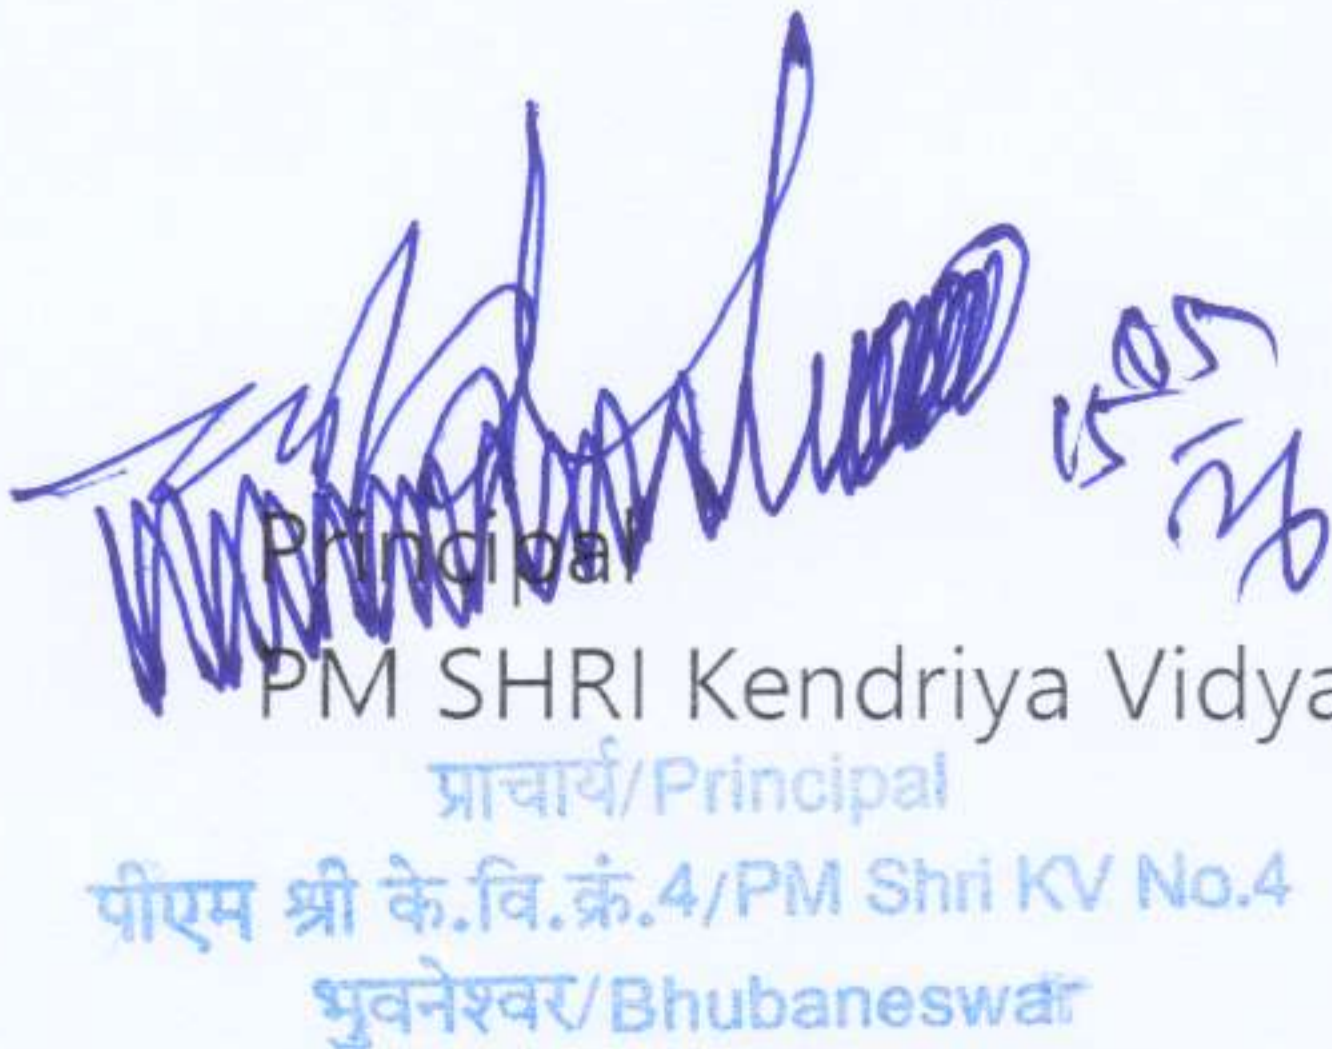 15/05
26
Principal
PM SHRI Kendriya Vidya
प्राचार्य/Principal
पीएम श्री के.वि.क्रं.4/PM Shri KV No.4
भुवनेश्वर/Bhubaneswar